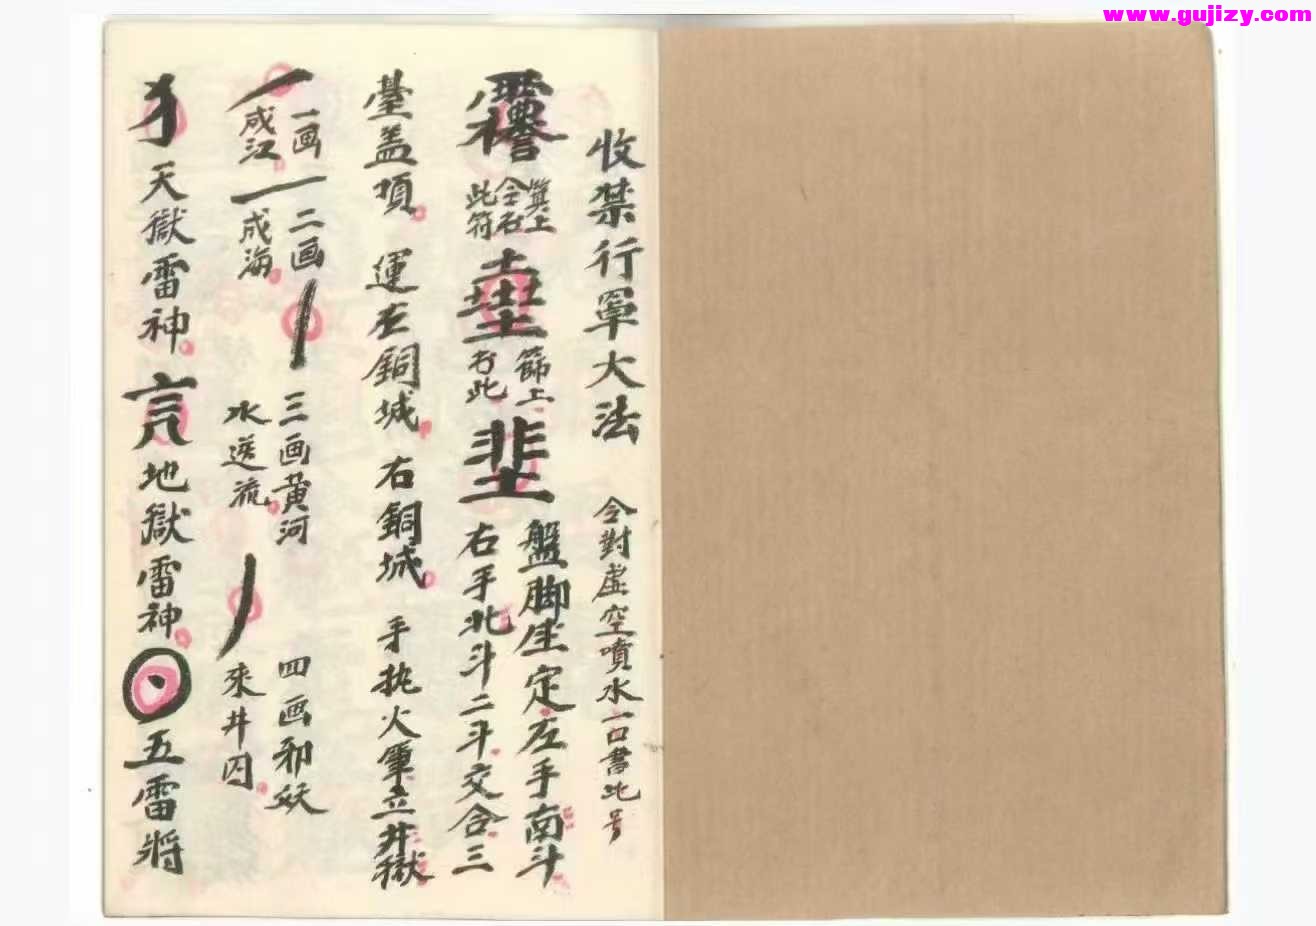 www.gujizy.com
收禁行罩大法 令對虚空噴水一口書此号
筭上令右此符 篩上书此 盤脚坐定左手南斗右手北斗二斗交合三
臺盖項 運左銅城 右銅城 手执火筆立井獄
一画成江 二画成海 三画黄河水送流 四画邪妖來井囚
犭天獄雷神 言地獄雷神 五雷將